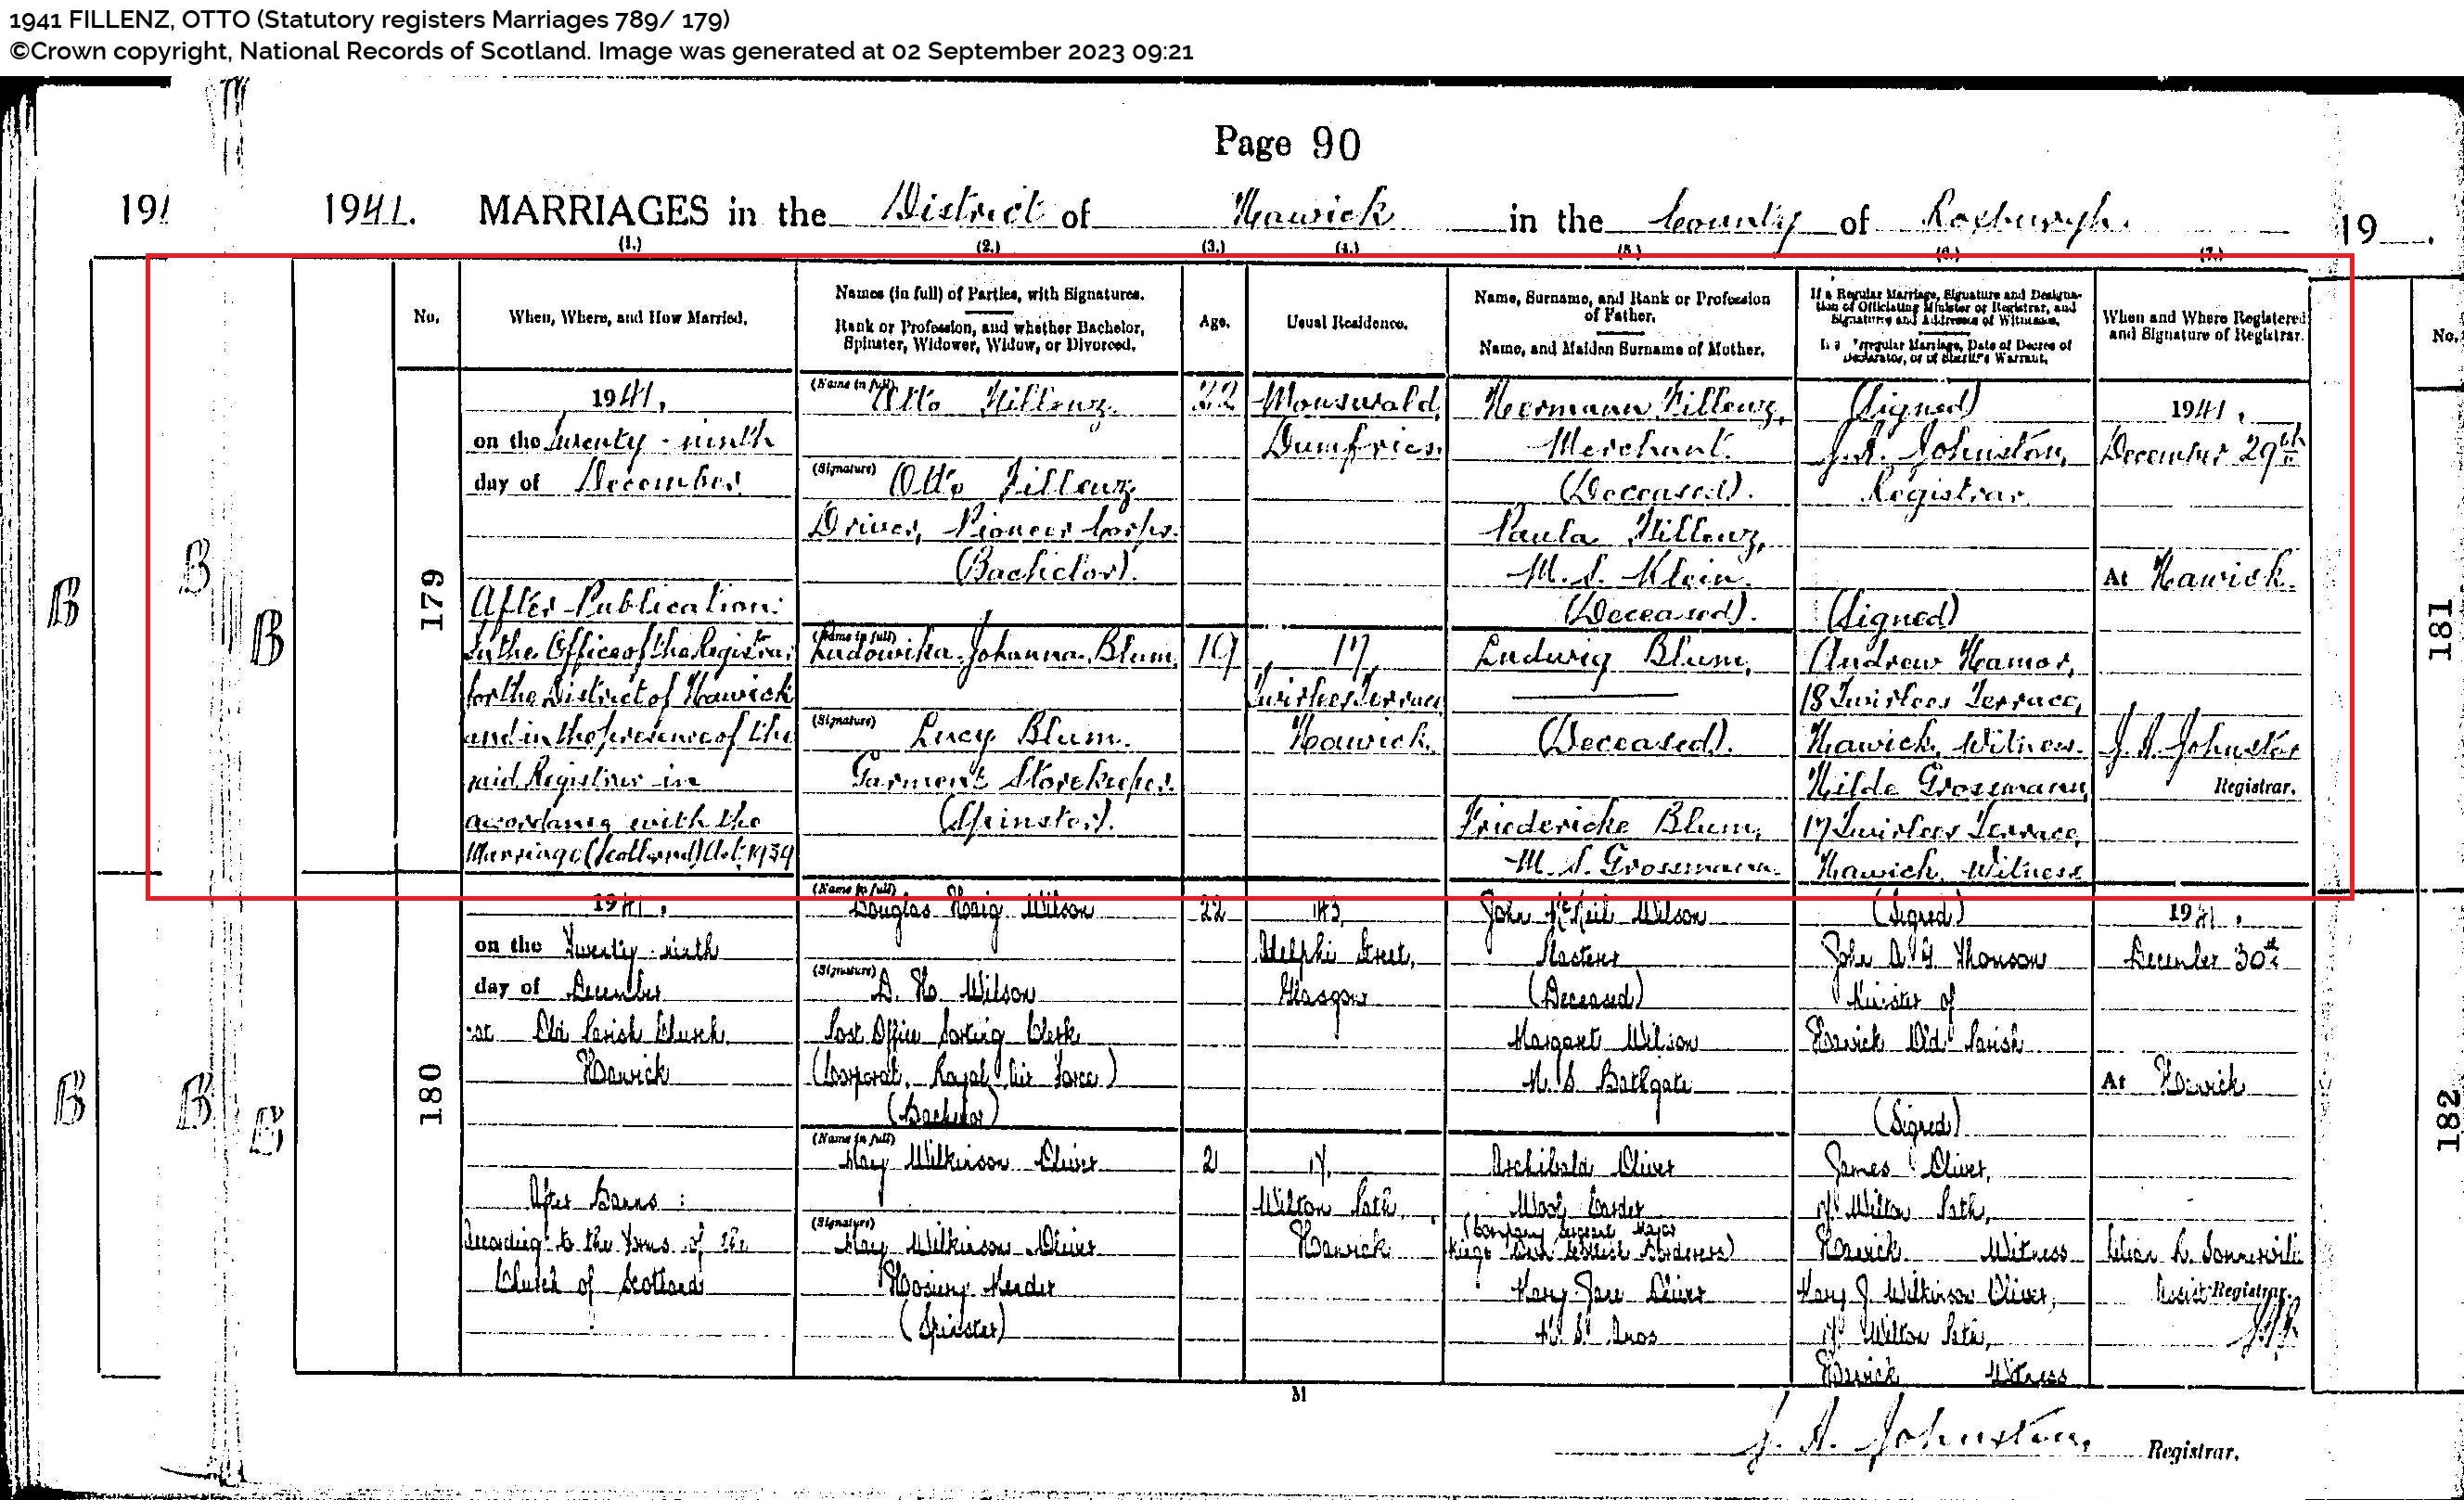 1941 FILLENZ, OTTO (Statutory registers Marriages 789/ 179)
©Crown copyright, National Records of Scotland. Image was generated at 02 September 2023 09:21
Page 90
1941. MARRIAGES in the District of Hawick in the County of Roxburgh.
19
(1.) (2.) (3.) (4.) (5.) (6.) (7.)
No.
When, Where, and How Married.
Names (in full) of Parties, with Signatures.
Rank or Profession, and whether Bachelor,
Spinster, Widower, Widow, or Divorced.
Age.
Usual Residence.
Name, Surname, and Rank or Profession
of Father.
Name, and Maiden Surname of Mother.
If a Regular Marriage, Signature and Designa-
tion of Officiating Minister or Registrar, and
Signatures and Addresses of Witnesses.
If a Irregular Marriage, Date of Decree of
Declarator, or of Sheriff's Warrant.
When and Where Registered
and Signature of Registrar.
No.
179
1941,
on the Twenty-ninth
day of December
After Publication:
In the Office of the Registrar
for the District of Hawick
and in the presence of the
said Registrar in
accordance with the
Marriage (Scotland) Act, 1939
(Name in full)
Otto Fillenz
(Signature)
Otto Fillenz
Driver, Pioneer Corps.
(Bachelor).
(Name in full)
Ludowika Johanna Blum
(Signature)
Lucy Blum.
Garment Storekeeper.
(Spinster).
22
19
Mouswald,
Dumfries.
17,
Twirlees Terrace
Hawick.
Hermann Fillenz,
Merchant.
(Deceased).
Paula Fillenz,
M.S. Klein.
(Deceased).
Ludwig Blum,
(Deceased).
Friedericke Blum,
M.S. Grossmann.
(Signed)
J.A. Johnston,
Registrar.
(Signed)
Andrew Hamor,
18 Twirlees Terrace,
Hawick, Witness.
Hilde Grossmann,
17 Twirlees Terrace,
Hawick, Witness
1941,
December 29th
At Hawick.
J.A. Johnston
Registrar.
181
180
1941,
on the Twenty-ninth
day of December
at Old Parish Church
Hawick
After Banns:
According to the Forms of the
Church of Scotland
(Name in full)
Douglas Haig Wilson
(Signature)
D. H. Wilson
Post Office Sorting Clerk
(Corporal, Royal Air Force)
(Bachelor)
(Name in full)
Mary Wilkinson Oliver
(Signature)
Mary Wilkinson Oliver
Hosiery Mender
(Spinster)
22
21
143,
Adelphi Street,
Glasgow
Wilton Path,
Hawick
John McNeil Wilson
(Deceased)
Margaret Wilson
M.S. Bathgate
Archibald Oliver
(Company Sergeant Major
Kings Own Scottish Borderers)
Mary Jane Oliver
M.S. Amos
(Signed)
John A. G. Thomson
Minister of
Hawick Old Parish
(Signed)
James Oliver,
Wilton Path,
Hawick Witness
Mary J Wilkinson Oliver,
Wilton Path,
Hawick Witness
1941,
December 30th
At Hawick
Assist Registrar.
182
31
J. A. Johnston, Registrar.
B
B
B
B
B